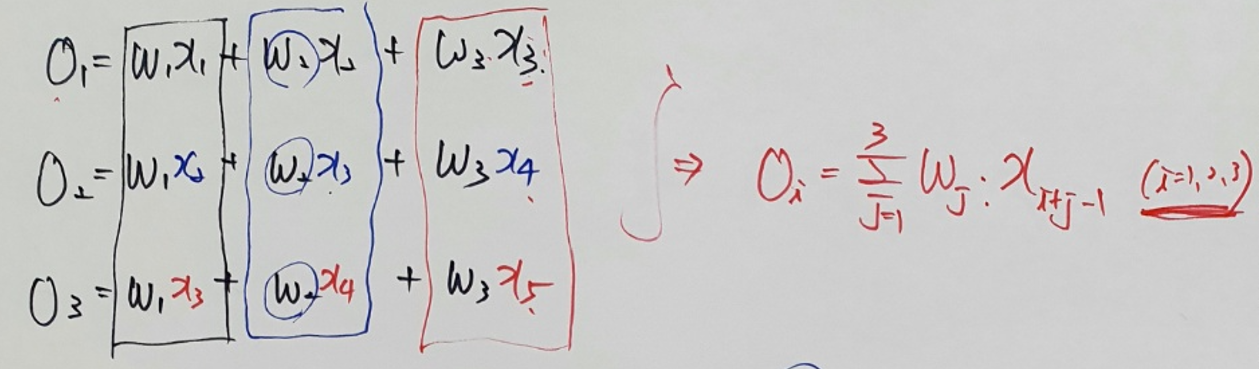 O₁ = w₁x₁ + w₂x₂ + w₃x₃
O₂ = w₁x₂ + w₂x₃ + w₃x₄
O₃ = w₁x₃ + w₂x₄ + w₃x₅
⇒ Oᵢ = Σ_{j=1}^{3} wⱼ · x_{i+j-1} (i=1,2,3)